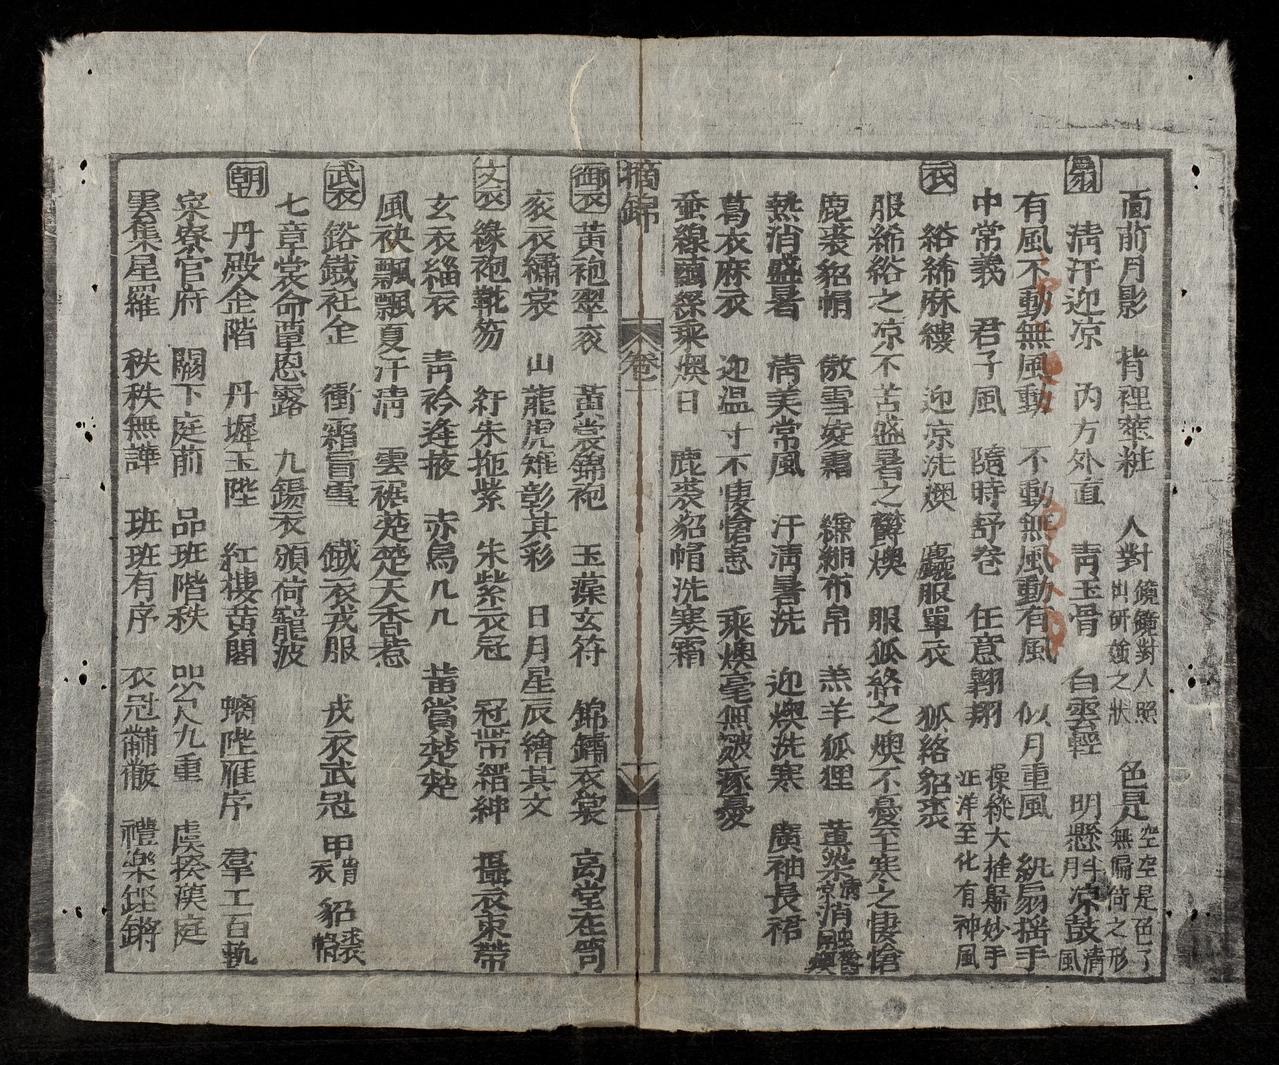 面前月影 背裡塵粧 人對鏡鏡對人照出研媸之狀 色是空空是色了無偏倚之形
扇 淸汗迎凉 內方外直 靑玉骨 白雲輕 明懸斗月凉鼓淸風
有風不動無風動 不動無風動有風 似月重風 紈扇搖手
中常義 君子風 隨時舒卷 任意翺翔 操縱大推鼻妙手 汪洋至化有神風
衣 綌絺麻縷 迎凉洗燠 麤服單衣 狐絡貂裘
服絺綌之凉不苦盛暑之欝燠 服狐絡之燠不憂至寒之悽愴
鹿裘貂帽 傲雪凌霜 綈綢布帛 羔羊狐狸 薰染淸凉消融暑燠
熱消盛暑 淸美常風 汗淸暑洗 迎燠洗寒 廣袖長裙
葛衣麻衣 迎温寸不悽愴恖 乘燠毫無皺涿憂
蚕線繭繰乘燠日 鹿裘貂帽洗寒霜
摘錦 卷
御衣 黃袍翠衮 黃裳錦袍 玉藻玄符 錦繡衣裳 高堂在笥
衮衣繡裳 山龍虎雉彰其彩 日月星辰繪其文
文衣 緣袍靴笏 紆朱拖紫 朱紫衣冠 冠帶縉紳 攝衣束帶
玄衣緇衣 靑衿逢掖 赤舃几几 黃裳楚楚
風袂飄飄夏汗淸 雲裾楚楚天香惹
武衣 鉻鐵社企 衝霜冒雪 鐵衣戎服 戎衣武冠 甲冑衣 貂裘帽
七章裳命覃恩露 九錫衣頒荷寵波
朝 丹殿企階 丹墀玉陛 紅樓黃閣 螭陛雁序 羣工百執
寀寮官府 闕下庭前 品班階秩 㕣公九重 虞揆漢庭
雲集星羅 秩秩無譁 班班有序 衣冠黼黻 禮樂鏗鏘